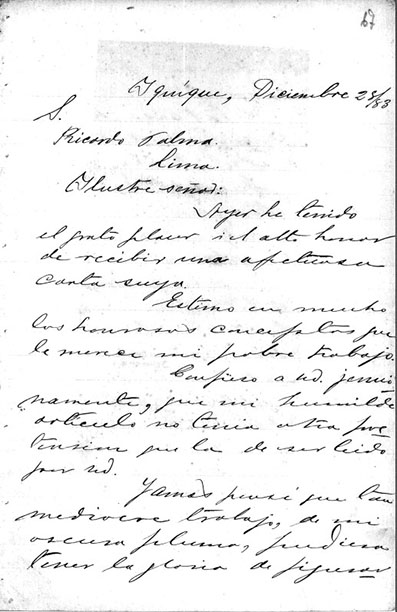 67
Iquique, Diciembre 28/88
S.
Ricardo Palma.
Lima.
Ilustre señor:
Ayer he tenido
el grato placer i el alto honor
de recibir una afectuosa
carta suya.
Estimo en mucho
los honrosos conceptos que
le merece mi pobre trabajo.
Confieso a ud. jenuí
namente, que mi humilde
artículo no tenia otra pre
tension que la de ser leido
por ud.
Jamás pensé que tan
mediocre trabajo, de mi
oscura pluma, pudiera
tener la gloria de figurar